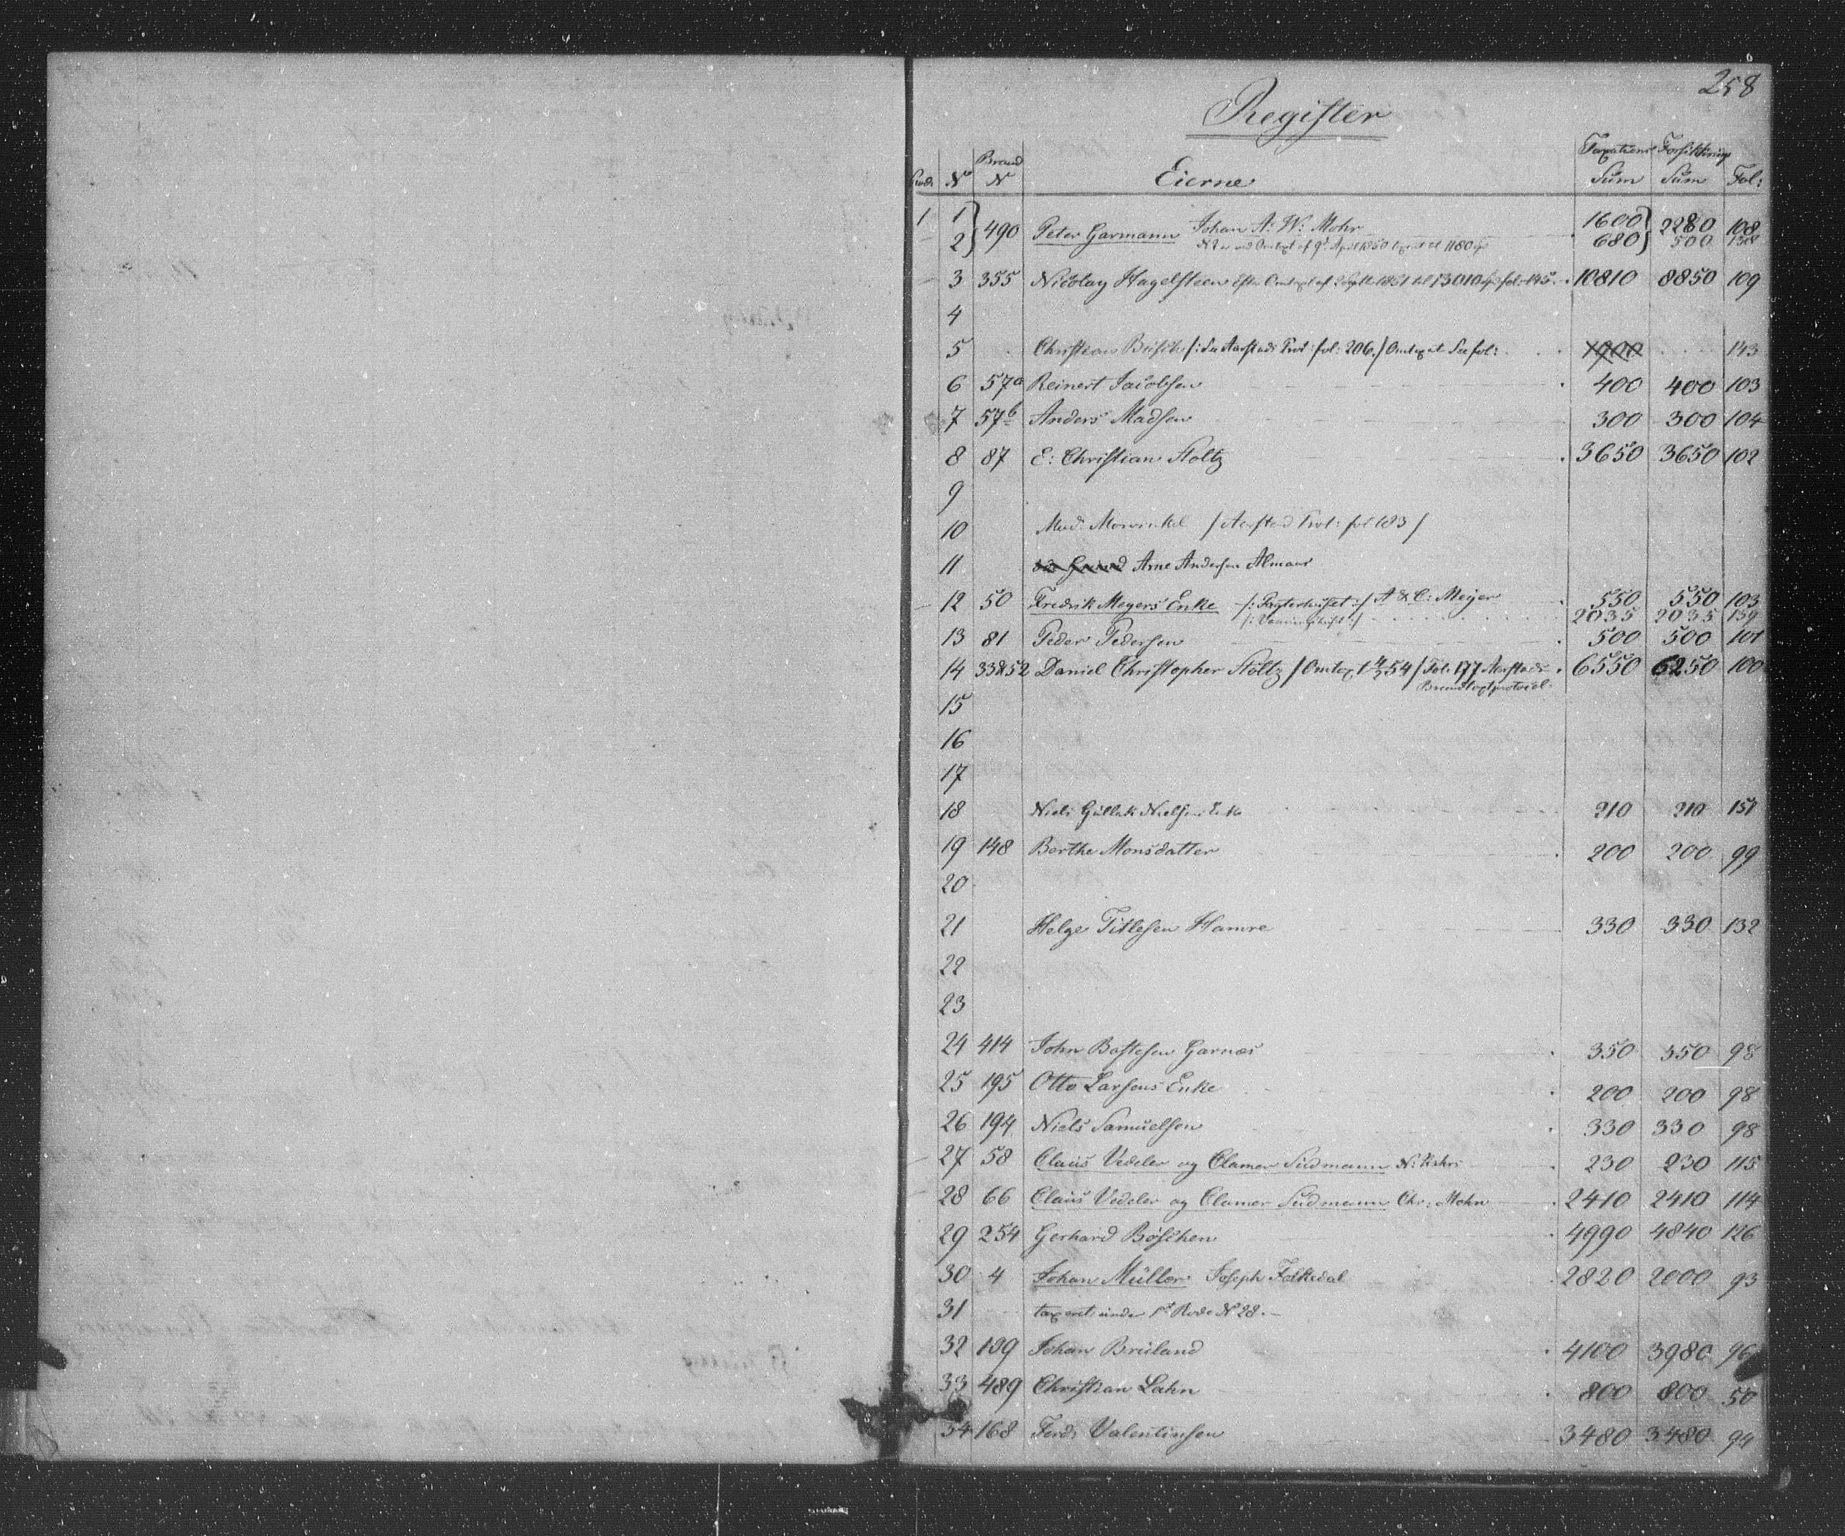 258
Register
Rode N° Brand N° Eierne Taxations Sum Forsikkrings Sum Fol:
1 1 } 490 Peter Garmann Johan A: W: Mohr 1600 } 2280 108
2 680 500 138
3 355 Nicolay Hagelsteen Efter Omtaxt af 1851 til 13010 fol: 145 10810 8850 109
4
5 Christian Büsch /: See Aarstads Prot: fol: 206./ Omtaxt See fol: 1900 143
6 57a Reinert Jacobsen 400 400 103
7 57b Anders Madsen 300 300 104
8 87 E: Christian Stoltz 3650 3650 102
9
10 Mad: Mowinkel /Aarstad Prot: fol 183/
11 Arne Andersen Almaas
12 50 Fredrik Meyers Enke /: :/ A & C: Meijer 550 550 103
/: :/ 2035 2035 139
13 81 Peder Pedersen 500 500 101
14 33&52 Daniel Christopher Stoltz /Omtaxt 54/ Fol: 177 Aarstads 6550 6250 100
Brandtaxtprotocol.
15
16
17
18 Niels Gullak Nielsens Enke 210 210 151
19 148 Berthe Monsdatter 200 200 99
20
21 Helge Titlesen Hamre 330 330 132
22
23
24 414 John Bottesen Garnæs 350 350 98
25 195 Otto Larsens Enke 200 200 98
26 194 Niels Samuelsen 330 330 98
27 58 Claus Vedeler og Clamer Sudmann N: 230 230 115
28 66 Claus Vedeler og Clamer Sudmann Chr: Mohn 2410 2410 114
29 254 Gerhard Böschen 4990 4840 126
30 4 Johan Müller Joseph Folkedal 2820 2000 93
31 taxeret under 1st Rode N° 28.
32 139 Johan Bruland 4100 3980 96
33 489 Christian Lahn 800 800 50
34 168 Ferd: Valentinsen 3480 3480 94